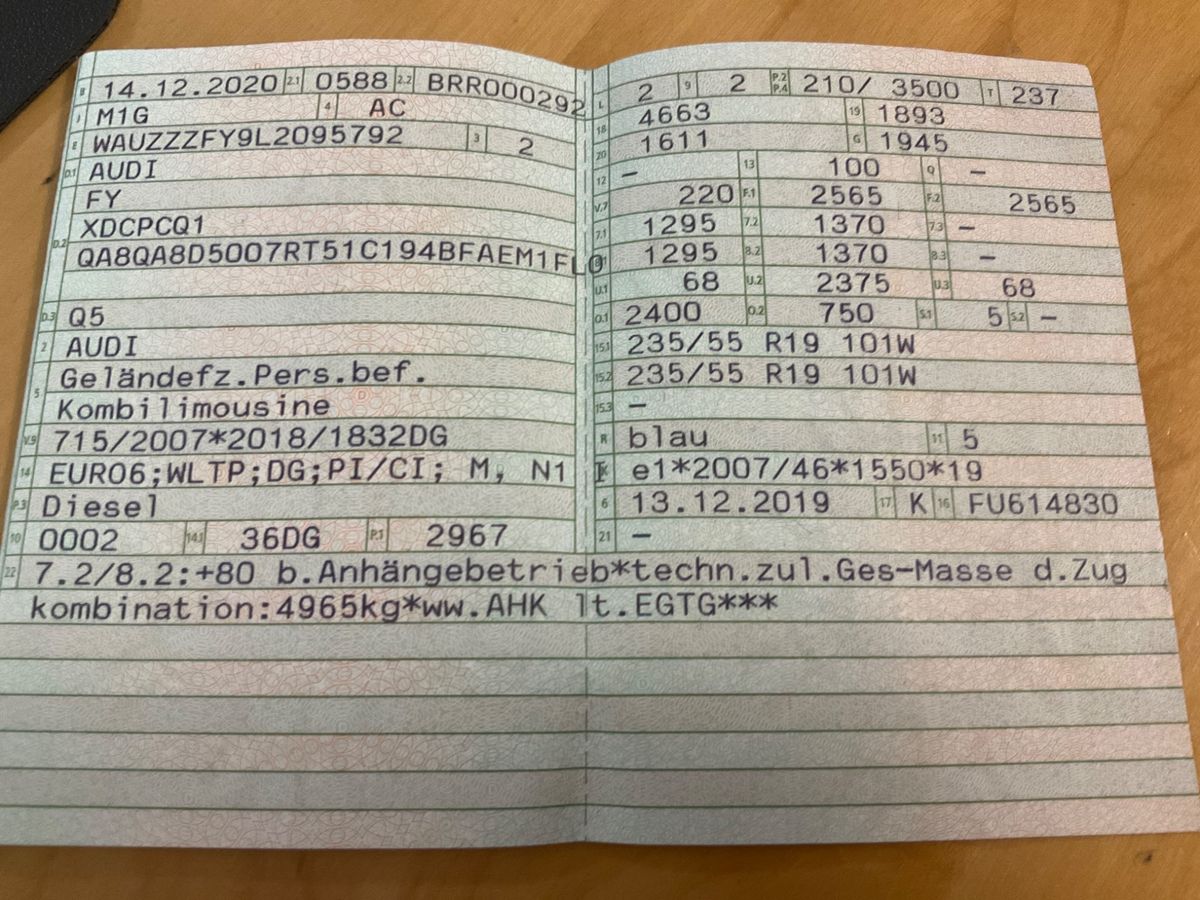 B 14.12.2020 2.1 0588 2.2 BRR000292
J M1G 4 AC
E WAUZZZFY9L2095792 3 2
D.1 AUDI
FY
D.2 XDCPCQ1
QA8QA8D5007RT51C194BFAEM1FL0
D.3 Q5
2 AUDI
5 Geländefz.Pers.bef.
Kombilimousine
V.9 715/2007*2018/1832DG
14 EURO6;WLTP;DG;PI/CI; M, N1 I
P.3 Diesel
10 0002 14.1 36DG P.1 2967
L 2 9 2 P.2 P.4 210/ 3500 T 237
18 4663 19 1893
20 1611 G 1945
12 – 13 100 Q –
V.7 220 F.1 2565 F.2 2565
7.1 1295 7.2 1370 7.3 –
8.1 1295 8.2 1370 8.3 –
U.1 68 U.2 2375 U.3 68
O.1 2400 O.2 750 S.1 5 S.2 –
15.1 235/55 R19 101W
15.2 235/55 R19 101W
15.3 –
R blau 11 5
K e1*2007/46*1550*19
6 13.12.2019 17 K 16 FU614830
21 –
22 7.2/8.2:+80 b.Anhängebetrieb*techn.zul.Ges-Masse d.Zug
kombination:4965kg*ww.AHK lt.EGTG***